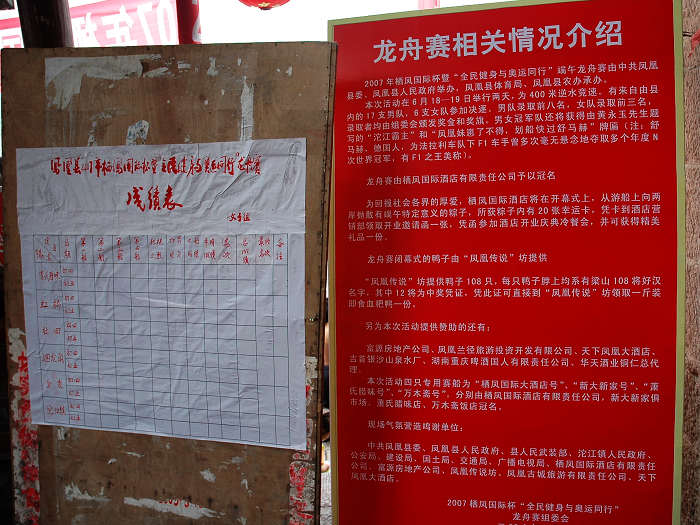 07年
凤凰县2007年栖凤国际杯暨全民健身与奥运同行龙舟赛
成绩表
女子组
龙舟赛相关情况介绍
2007年栖凤国际杯暨“全民健身与奥运同行”端午龙舟赛由中共凤凰
县委、凤凰县人民政府举办，凤凰县体育局、凤凰县农办承办。
本次活动在6月18—19日举行两天，为400米逆水竞速。有来自由县
内的17支男队，6支女队参加决逐，男队录取前八名，女队录取前三名，
录取者均由组委会颁发奖金和奖旗。男女冠军队还将获得由黄永玉先生题
写的“沱江霸主”和“凤凰妹崽了不得，划船快过舒马赫”牌匾（注：舒
马赫、德国人，为法拉利车队下F1车手曾多次毫无悬念地夺取多个年度N
次世界冠军，有F1之王美称）。
龙舟赛由栖凤国际酒店有限责任公司予以冠名
为回报社会各界的厚爱，栖凤国际酒店将在开幕式上，从游船上向两
岸抛散有端午特定意义的粽子，所获粽子内有20张幸运卡，凭卡到酒店营
销部领取开业邀请函一张，凭函参加酒店开业庆典冷餐会，并可获得精美
礼品一份。
龙舟赛闭幕式的鸭子由“凤凰传说”坊提供
“凤凰传说”坊提供鸭子108只，每只鸭子脖上均系有梁山108将好汉
名字，其中12将为中奖凭证，凭此证可直接到“凤凰传说”坊领取一斤装
即食血粑鸭一份。
另为本次活动提供赞助的还有：
富源房地产公司、凤凰兰径旅游投资开发有限公司、天下凤凰大酒店、
古苗银沙山泉水厂、湖南重庆啤酒国人有限责任公司、华天酒业铜仁总代
理。
本次活动四只专用赛船为“栖凤国际大酒店号”、“新大新家号”、“萧
氏腊味号”、“万木斋号”，分别由栖凤国际酒店有限责任公司，新大新家俱
市场、萧氏腊味店、万木斋饭店冠名。
现场气氛营造鸣谢单位：
中共凤凰县委、凤凰县人民政府、县人民武装部、沱江镇人民政府、
公安局、建设局、国土局、交通局、广播电视局、栖凤国际酒店有限责任
公司、富源房地产公司、凤凰传说坊、凤凰古城旅游有限责任公司、天下
凤凰大酒店。
2007栖凤国际杯“全民健身与奥运同行”
龙舟赛组委会